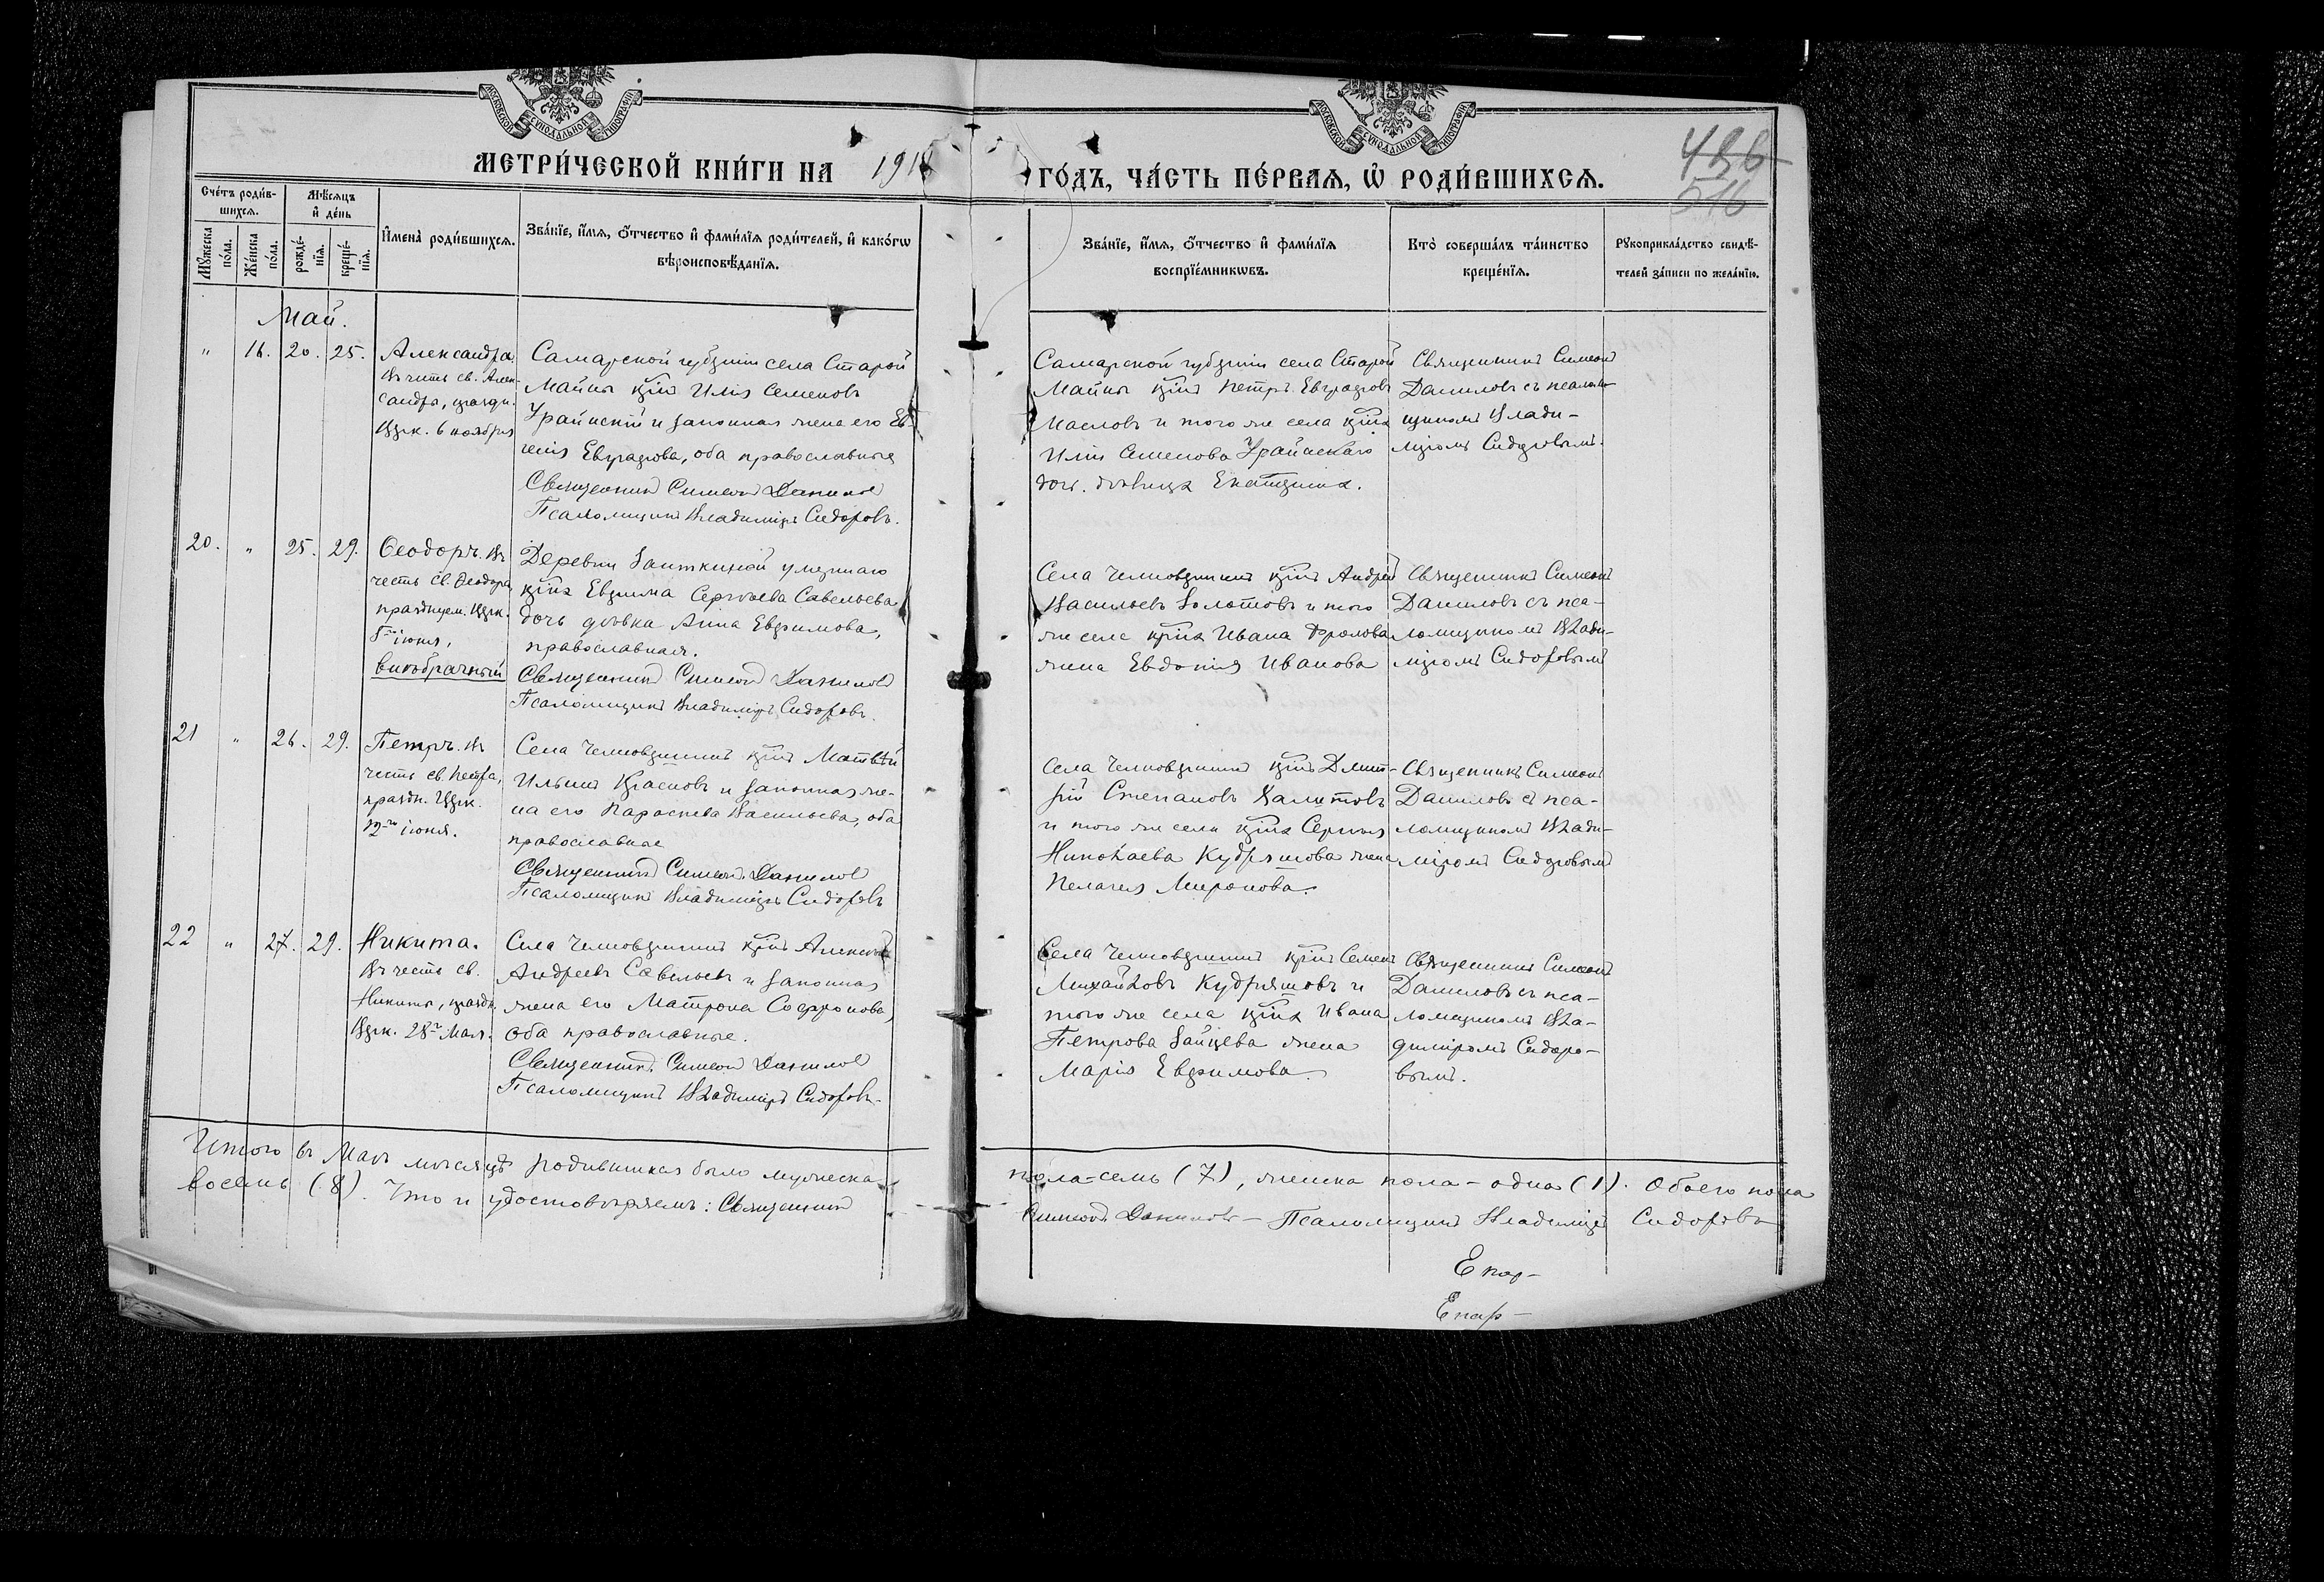 МОСКОВСКОЙ СУНОДАЛЬНОЙ ТИПОГРАФІИ
МОСКОВСКОЙ СУНОДАЛЬНОЙ ТИПОГРАФІИ
МЕТРИ́ЧЕСКОЙ КНИ́ГИ НА 191
ГО́ДЪ, ЧА́СТЬ ПЕ́РВАЯ, Ѡ РОДИ́ВШИХСЯ.
516
Сче́тъ роди́в-
шихся.
Мѣ́сяцъ
и҆ де́нь
Му́жеска
по́ла.
Же́нска
по́ла.
рожде́-
нїя.
креще́-
нїя.
И҆мена̀ роди́вшихся.
Зва́нїе, и҆́мя, ѻ҆́тчество и҆ фами́лїя роди́телей, и҆ како́гѡ
вѣроисповѣ́данїя.
Зва́нїе, и҆́мя, ѻ҆́тчество и҆ фами́лїя
воспрїе́мникѡвъ.
Кто̀ соверша́лъ та́инство
креще́нїя.
Рꙋкоприкла́дство свидѣ́-
телей за́писи по жела́нїю.
Май.
" 16. 20. 25.
Александра
Въ честь св. Алек-
сандры, праздн.
Церк. 6 ноября
Самарской губерніи села Старой
Майны кр̃ин Илія Семеновъ
Урайнскій и законная жена его Ев-
генія Евграфова, оба православные
Священникъ Симеонъ Даниловъ
Псаломщикъ Владиміръ Сидоровъ.
Самарской губерніи села Старой
Майны кр̃ин Петръ Евграфовъ
Масловъ и того же села кр̃ина
Иліи Семенова Урайнскаго
доч. дѣвица Екатерина.
Священникъ Симеонъ
Даниловъ съ псалом-
щикомъ Влади-
міромъ Сидоровымъ.
20. " 25. 29.
Ѳеодоръ. Въ
честь св. Ѳеодора,
празднуем. Церк.
іюня,
внѣбрачный
Деревни умершаго
кр̃ина Евфима Сергѣева Савельева
дочь дѣвка Анна Евфимова,
православная.
Священникъ Симеонъ Даниловъ
Псаломщикъ Владиміръ Сидоровъ.
Села кр̃ин Андрей
Васильевъ Золотовъ и того
же села кр̃ина Ивана Фролова
жена Евдокія Иванова
Священникъ Симеонъ
Даниловъ съ пса-
ломщикомъ Влади-
міромъ Сидоровымъ
21 " 26. 29.
Петръ. Въ
честь св. Петра,
праздн. Церк.
12го іюня.
Села кр̃ин Матвѣй
Ильинъ Красновъ и законная же-
на его Параскева Васильева, оба
православные
Священникъ Симеонъ Даниловъ
Псаломщикъ Владиміръ Сидоровъ
Села кр̃ин Дмит-
рій Степановъ Халитовъ
и того же села кр̃ина Сергѣя
Николаева Кудряшова жена
Пелагія Миронова.
Священникъ Симеонъ
Даниловъ съ пса-
ломщикомъ Влади-
міромъ Сидоровымъ
22 " 27. 29.
Никита.
Въ честь св.
Никиты, праздн.
Церк. 28го Мая.
Села кр̃ин Алексѣй
Андреевъ Савельевъ и законная
жена его Матрона Софронова,
оба православные.
Священникъ Симеонъ Даниловъ
Псаломщикъ Владиміръ Сидоровъ.
Села кр̃ин Семенъ
Михайловъ Кудряшовъ и
того же села кр̃ина Ивана
Петрова Зайцева жена
Марія Евфимова.
Священникъ Симеонъ
Даниловъ съ пса-
ломщикомъ Вла-
диміромъ Сидоро-
вымъ.
Итого въ Маѣ мѣсяцѣ родившихся было мужеска пола-семь (7), женска пола-одна (1). Обоего пола
восемь (8). Что и удостовѣряемъ: Священникъ Симеонъ Даниловъ Псаломщикъ Владиміръ Сидоровъ